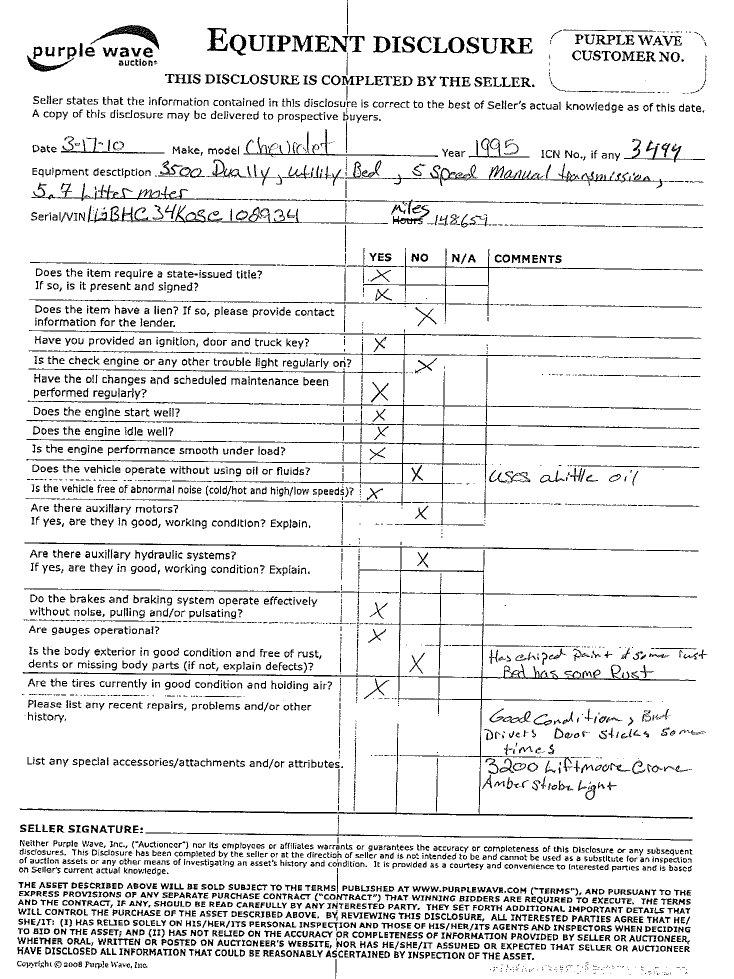 purple wave
auction®
EQUIPMENT DISCLOSURE
PURPLE WAVE
CUSTOMER NO.
THIS DISCLOSURE IS COMPLETED BY THE SELLER.
Seller states that the information contained in this disclosure is correct to the best of Seller's actual knowledge as of this date.
A copy of this disclosure may be delivered to prospective buyers.
Date 3-17-10 Make, model Chevrolet Year 1995 ICN No., if any 3494
Equipment desctiption 3500 Dually, utility Bed, 5 Speed Manual transmission,
5.7 Litter moter
Serial/VIN 1GBHC34K0SE108934 Hours miles 148659
YES NO N/A COMMENTS
Does the item require a state-issued title? X
If so, is it present and signed? X
Does the item have a lien? If so, please provide contact
information for the lender. X
Have you provided an ignition, door and truck key? X
Is the check engine or any other trouble light regularly on? X
Have the oil changes and scheduled maintenance been
performed regularly? X
Does the engine start well? X
Does the engine idle well? X
Is the engine performance smooth under load? X
Does the vehicle operate without using oil or fluids? X uses a little oil
Is the vehicle free of abnormal noise (cold/hot and high/low speeds)? X
Are there auxillary motors? X
If yes, are they in good, working condition? Explain.
Are there auxillary hydraulic systems? X
If yes, are they in good, working condition? Explain.
Do the brakes and braking system operate effectively
without noise, pulling and/or pulsating? X
Are gauges operational? X
Is the body exterior in good condition and free of rust, Has chiped paint & some rust
dents or missing body parts (if not, explain defects)? X Bed has some Rust
Are the tires currently in good condition and holding air? X
Please list any recent repairs, problems and/or other Good Condition, But
history. Drivers Door Sticks Some
times
List any special accessories/attachments and/or attributes. 3200 Liftmoore Crane
Amber Strobe Light
SELLER SIGNATURE:
Neither Purple Wave, Inc., ("Auctioneer") nor its employees or affiliates warrants or guarantees the accuracy or completeness of this Disclosure or any subsequent
disclosures. This Disclosure has been completed by the seller or at the direction of seller and is not intended to be and cannot be used as a substitute for an inspection
of auction assets or any other means of investigating an asset's history and condition. It is provided as a courtesy and convenience to interested parties and is based
on Seller's current actual knowledge.
THE ASSET DESCRIBED ABOVE WILL BE SOLD SUBJECT TO THE TERMS PUBLISHED AT WWW.PURPLEWAVE.COM ("TERMS"), AND PURSUANT TO THE
EXPRESS PROVISIONS OF ANY SEPARATE PURCHASE CONTRACT ("CONTRACT") THAT WINNING BIDDERS ARE REQUIRED TO EXECUTE. THE TERMS
AND THE CONTRACT, IF ANY, SHOULD BE READ CAREFULLY BY ANY INTERESTED PARTY. THEY SET FORTH ADDITIONAL IMPORTANT DETAILS THAT
WILL CONTROL THE PURCHASE OF THE ASSET DESCRIBED ABOVE. BY REVIEWING THIS DISCLOSURE, ALL INTERESTED PARTIES AGREE THAT HE/
SHE/IT: (I) HAS RELIED SOLELY ON HIS/HER/ITS PERSONAL INSPECTION AND THOSE OF HIS/HER/ITS AGENTS AND INSPECTORS WHEN DECIDING
TO BID ON THE ASSET; AND (II) HAS NOT RELIED ON THE ACCURACY OR COMPLETENESS OF INFORMATION PROVIDED BY SELLER OR AUCTIONEER,
WHETHER ORAL, WRITTEN OR POSTED ON AUCTIONEER'S WEBSITE, NOR HAS HE/SHE/IT ASSUMED OR EXPECTED THAT SELLER OR AUCTIONEER
HAVE DISCLOSED ALL INFORMATION THAT COULD BE REASONABLY ASCERTAINED BY INSPECTION OF THE ASSET.
Copyright © 2008 Purple Wave, Inc.